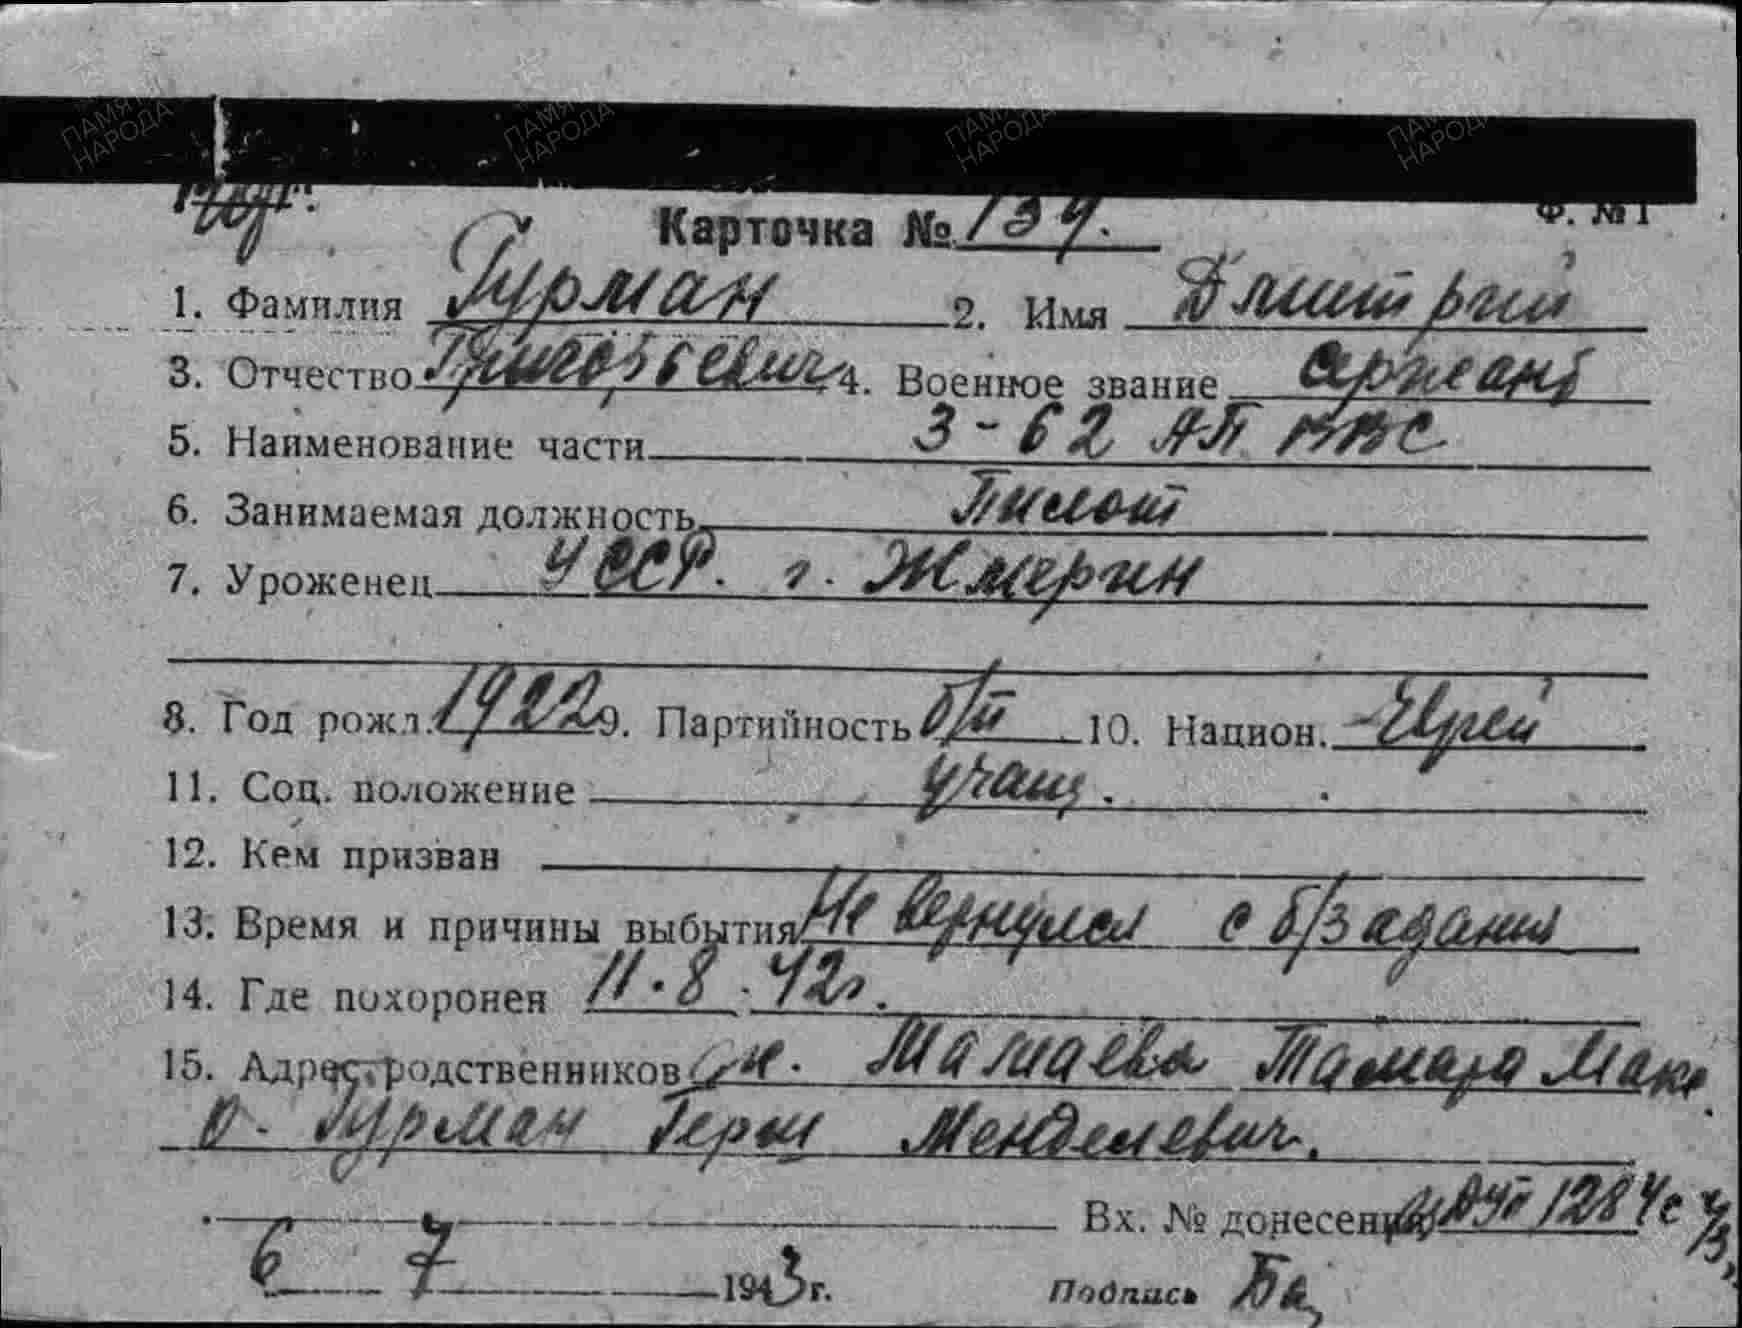 Ф. №1
Карточка № 134.
1. Фамилия Гурман 2. Имя Дмитрий
3. Отчество Григорьевич 4. Военное звание сержант
5. Наименование части 3-62 АП ВВС
6. Занимаемая должность Пилот
7. Уроженец УССР. г. Жмерин
8. Год рожд. 1922 9. Партийность б/п 10. Национ. Еврей
11. Соц. положение учащ.
12. Кем призван
13. Время и причины выбытия Не вернулся с б/задания
14. Где похоронен 11.8.42г.
15. Адрес родственников Тамара Макс.
о. Гурман Герш Менделевич.
Вх. № донесения 1284с
6 7 1943 г. Подпись
ПАМЯТЬ НАРОДА